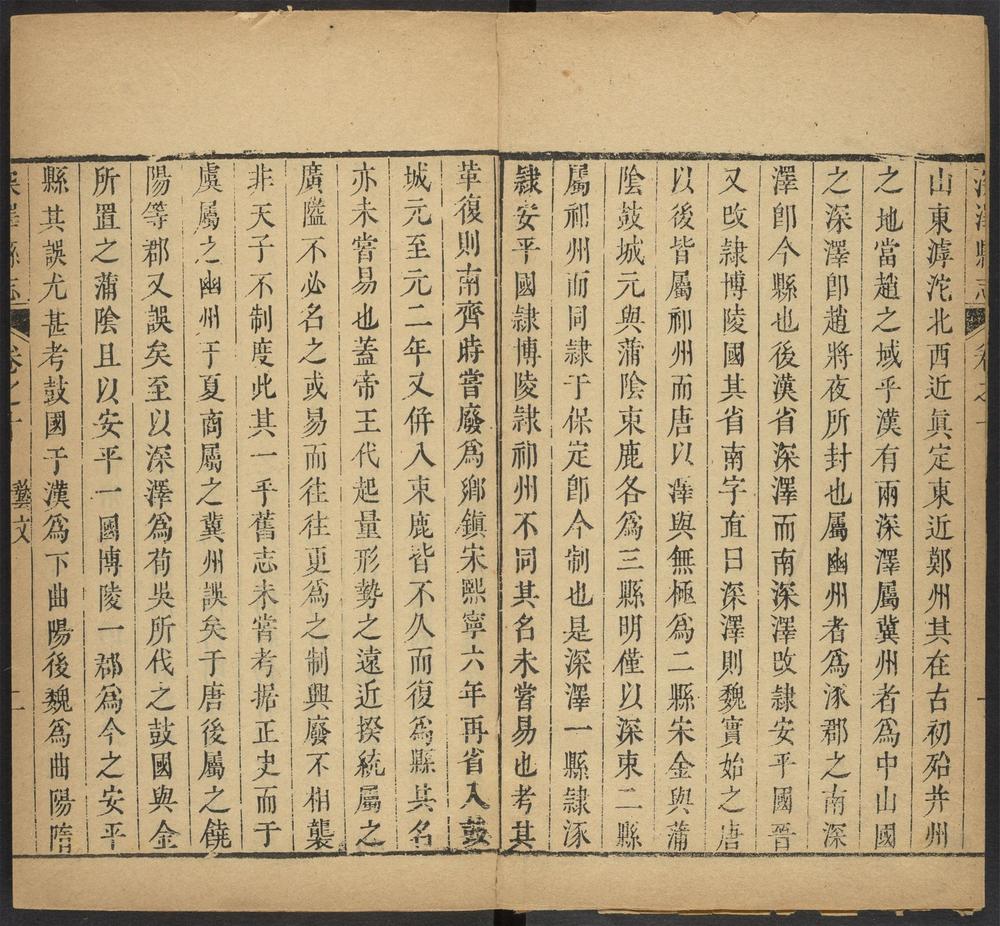 深澤縣志 卷之十
山東滹沱北西近眞定東近鄭州其在古初殆并州
之地當趙之域乎漢有兩深澤屬冀州者爲中山國
之深澤卽趙將夜所封也屬幽州者爲涿郡之南深
澤卽今縣也後漢省深澤而南深澤改隸安平國晉
又改隸博陵國其省南字直曰深澤則魏實始之唐
以後皆屬祁州而唐以澤與無極爲二縣宋金與蒲
陰鼓城元與蒲陰束鹿各爲三縣明僅以深束二縣
屬祁州而同隸于保定卽今制也是深澤一縣隸涿
隸安平國隸博陵隸祁州不同其名未嘗易也考其
革復則南齊時嘗廢爲鄉鎮宋熙寧六年再省入鼓
城元至元二年又併入束鹿皆不久而復爲縣其名
亦未嘗易也蓋帝王代起量形勢之遠近揆統屬之
廣隘不必名之或易而往往更爲之制興廢不相襲
非天子不制度此其一乎舊志未嘗考据正史而于
虞屬之幽州于夏商屬之冀州誤矣于唐後屬之饒
陽等郡又誤矣至以深澤爲荀吳所代之鼓國與金
所置之蒲陰且以安平一國博陵一郡爲今之安平
縣其誤尤甚考鼓國于漢爲下曲陽後魏爲曲陽隋
深澤縣志 卷之十 藝文 二